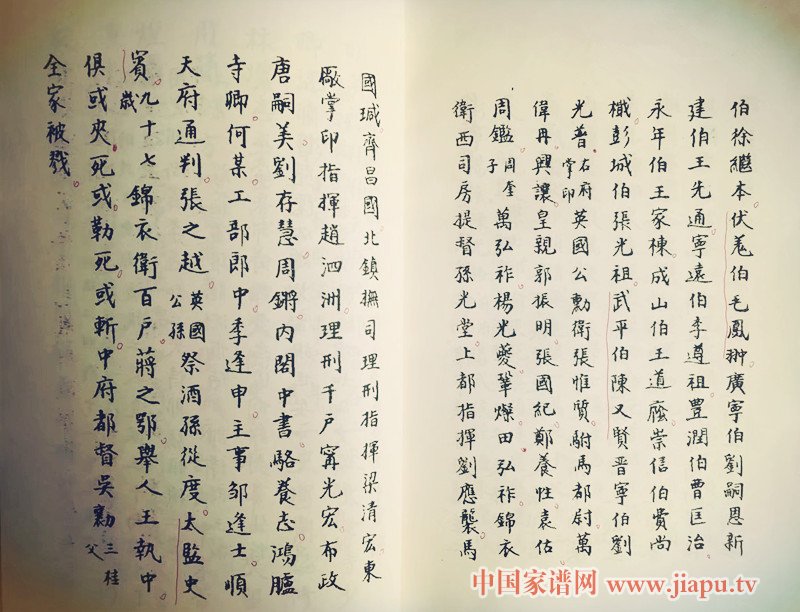 伯徐繼本伏羗伯毛鳳翀廣寧伯劉嗣恩新
建伯王先通寧遠伯李遵祖豊潤伯曹匡治
永年伯王家棟成山伯王道廕崇信伯費尚
檝彭城伯張光祖武平伯陳又賢晋寧伯劉
光普右府掌印英國公勳衛張惟質駙馬都尉萬
偉冉興讓皇親郭振明張國紀鄭養性袁佑
周鑑周奎子萬弘祚楊光夔鞏燦田弘祚錦衣
衛西司房提督孫光堂上都指揮劉應襲馬
國瑊齊昌國北鎮撫司理刑指揮梁清宏東
厰掌印指揮趙泗洲理刑千戶甯光宏布政
唐嗣美劉存慧周鏘内閣中書駱養志鴻臚
寺卿何某工部郎中季逢申主事邹逢士順
天府通判張之越英國公孫祭酒孫從度太監史
賓歲九十七錦衣衛百戶蔣之鄂舉人王執中
俱或夾死或勒死或斬中府都督吳勷三桂父
全家被戮
中国家谱网 www.jiapu.tv